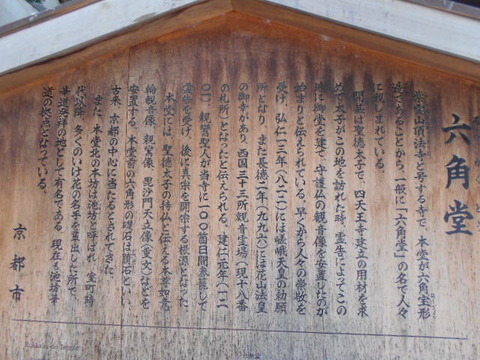 六角堂
紫雲山頂法寺と号する寺で、本堂が六角宝形
造であることから、一般に「六角堂」の名で人々
に親しまれている。
開基は聖徳太子で、四天王寺建立の用材を求
めて太子がこの地を訪れた時、霊告によってこの
地に御堂を建て、守護仏の観音像を安置したのが
始まりと伝えられている。早くから人々の崇敬を
受け、弘仁十三年(八二二)には嵯峨天皇の勅願
所となり、また長徳二年(九九六)には花山法皇
の御幸があり、西国三十三所観音霊場(現十八番
の札所)となったと伝えられる。建仁元年(一二
〇一)、親鸞聖人が当寺に一〇〇箇日間参籠して
霊告を受け、後に真宗を開宗する根源となった。
本堂には、聖徳太子の持仏と伝える本尊如意
輪観音像、親鸞像、毘沙門天立像(重文)などを
安置する。本堂前の六角形の礎石は臍石といい、
古来、京都の中心に当たるとされてきた。
また、本堂北の本坊は池坊と呼ばれ、室町時
代以降、多くのいけ花の名手を輩出した所で、
華道発祥の地として有名である。現在も池坊華
道の拠点となっている。
京都市